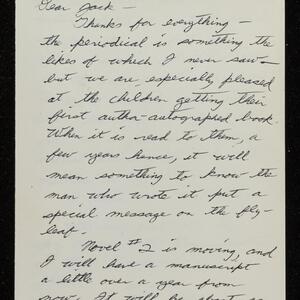 Dear Jack –
Thanks for everything –
the periodical is something the
likes of which I never saw –
but we are especially pleased
at the children getting their
first author-autographed book.
When it is read to them, a
few years hence, it will
mean something to know the
man who wrote it put a
special message on the fly-
leaf.
Novel #2 is moving, and
I will have a manuscript
a little over a year from
now. It will be about